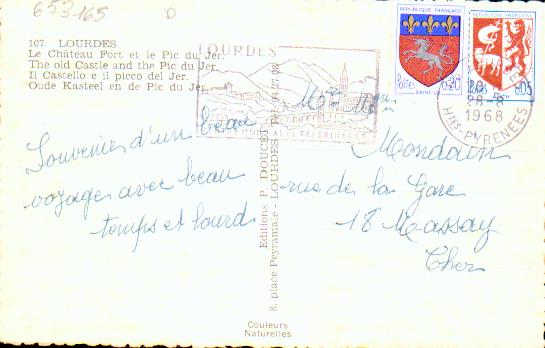 653-165
D
107. LOURDES.
Le Château Fort et le Pic du Jer.
The old Castle and the Pic du Jer.
Il Castello e il picco del Jer.
Oude Kasteel en de Pic du Jer.
LOURDES
MONDIAL DE PELERINAGE
REPUBLIQUE FRANÇAISE
Postes 0,20
SAINT-LO
REPUBLIQUE FRANÇAISE
0,05
AUCH
28-8
1968
Htes-PYRENEES
Souvenirs d'un beau
voyages avec beau
temps et lourd
Editions P. DOUCET
8, place Peyramale - LOURDES
Couleurs
Naturelles
Mondain
rue de la Gare
18 Massay
Cher